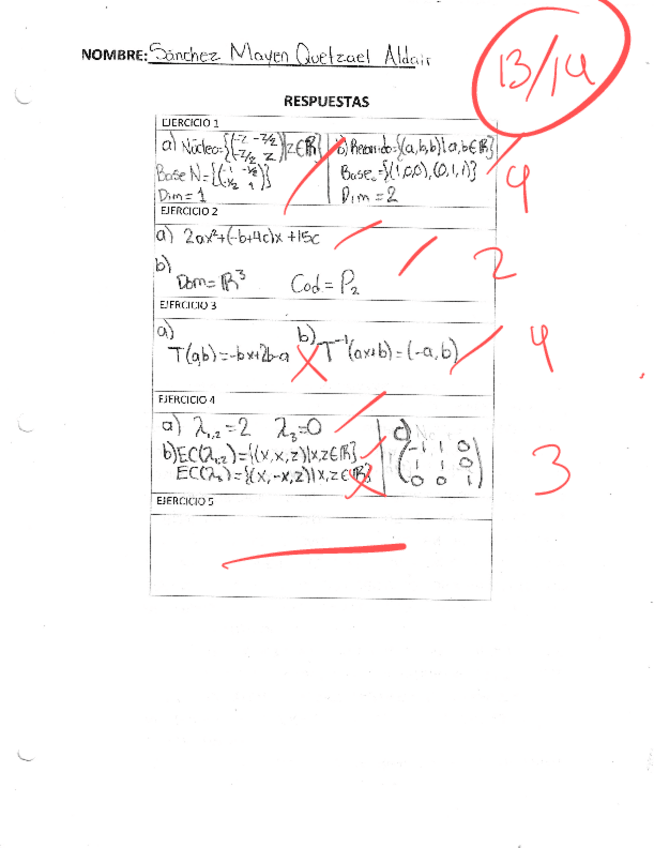 NOMBRE: Sánchez Mayen Quetzael Aldair
13/14
RESPUESTAS
EJERCICIO 1
a) Núcleo={(-z -z/2 -z/2 z)|z∈ℝ}
Base N={(-1 -1/2 -1/2 1)}
Dim=1
b) Recorrido={(a,b,b)|a,b∈ℝ}
Base={(1,0,0),(0,1,1)}
Dim=2
4
EJERCICIO 2
a) 2ax²+(-b+4c)x+15c
b) Dom=ℝ³ Cod=P₂
2
EJERCICIO 3
a) T(a,b)=-bx+2b-a
b) T⁻¹(ax+b)=(-a,b)
4
EJERCICIO 4
a) λ₁,₂=2 λ₃=0
b) EC(λ₁,₂)={(x,x,z)|x,z∈ℝ}
EC(λ₃)={(x,-x,z)|x,z∈ℝ}
c)
-1 1 0
1 1 0
0 0 1
3
EJERCICIO 5